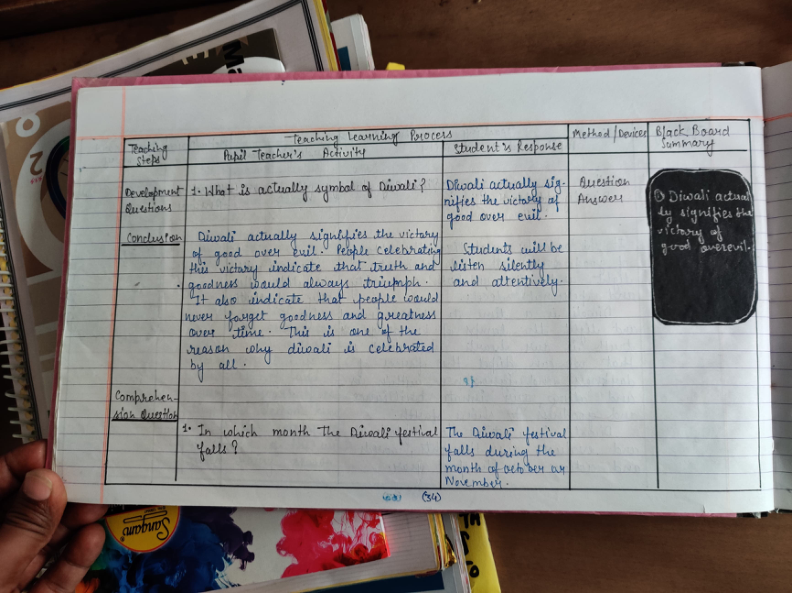 Teaching Learning Process
Teaching
Steps
Pupil Teacher's Activity
Student's Response
Method/Devices
Black Board
Summary
Development
Questions
1. What is actually symbol of Diwali?
Diwali actually sig-
nifies the victory of
good over evil.
Question
Answer
Diwali actual
ly signifies the
victory of
good over evil.
Conclusion
Diwali actually signifies the victory
of good over evil. People celebrating
this victory indicate that truth and
goodness would always triumph.
It also indicate that people would
never forget goodness and greatness
over time. This is one of the
reason why diwali is celebrated
by all.
Students will be
listen silently
and attentively.
Comprehen-
sion Question
1. In which month The Diwali festival
falls?
The Diwali festival
falls during the
month of october or
November.
(34)
Sangam